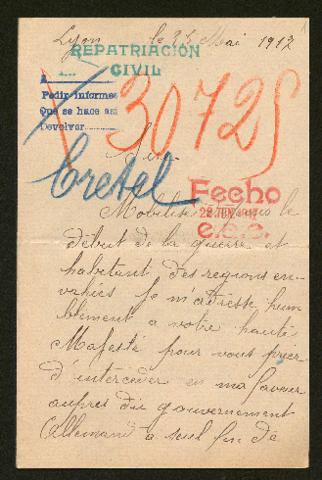 Lyon le 25 Mai 1917
REPATRIACIÓN
CIVIL
A
Pedir informes
Que se hace así
Devolver
30725
Sire
Cretel
Fecho
Mobilisé depuis le
début de la guerre et
habitant des régions en-
vahies je m'adresse hum
blement a votre haute
Majesté pour vous prier
d'interceder en ma faveur
aupres du gouvernement
Allemand a seul fin de